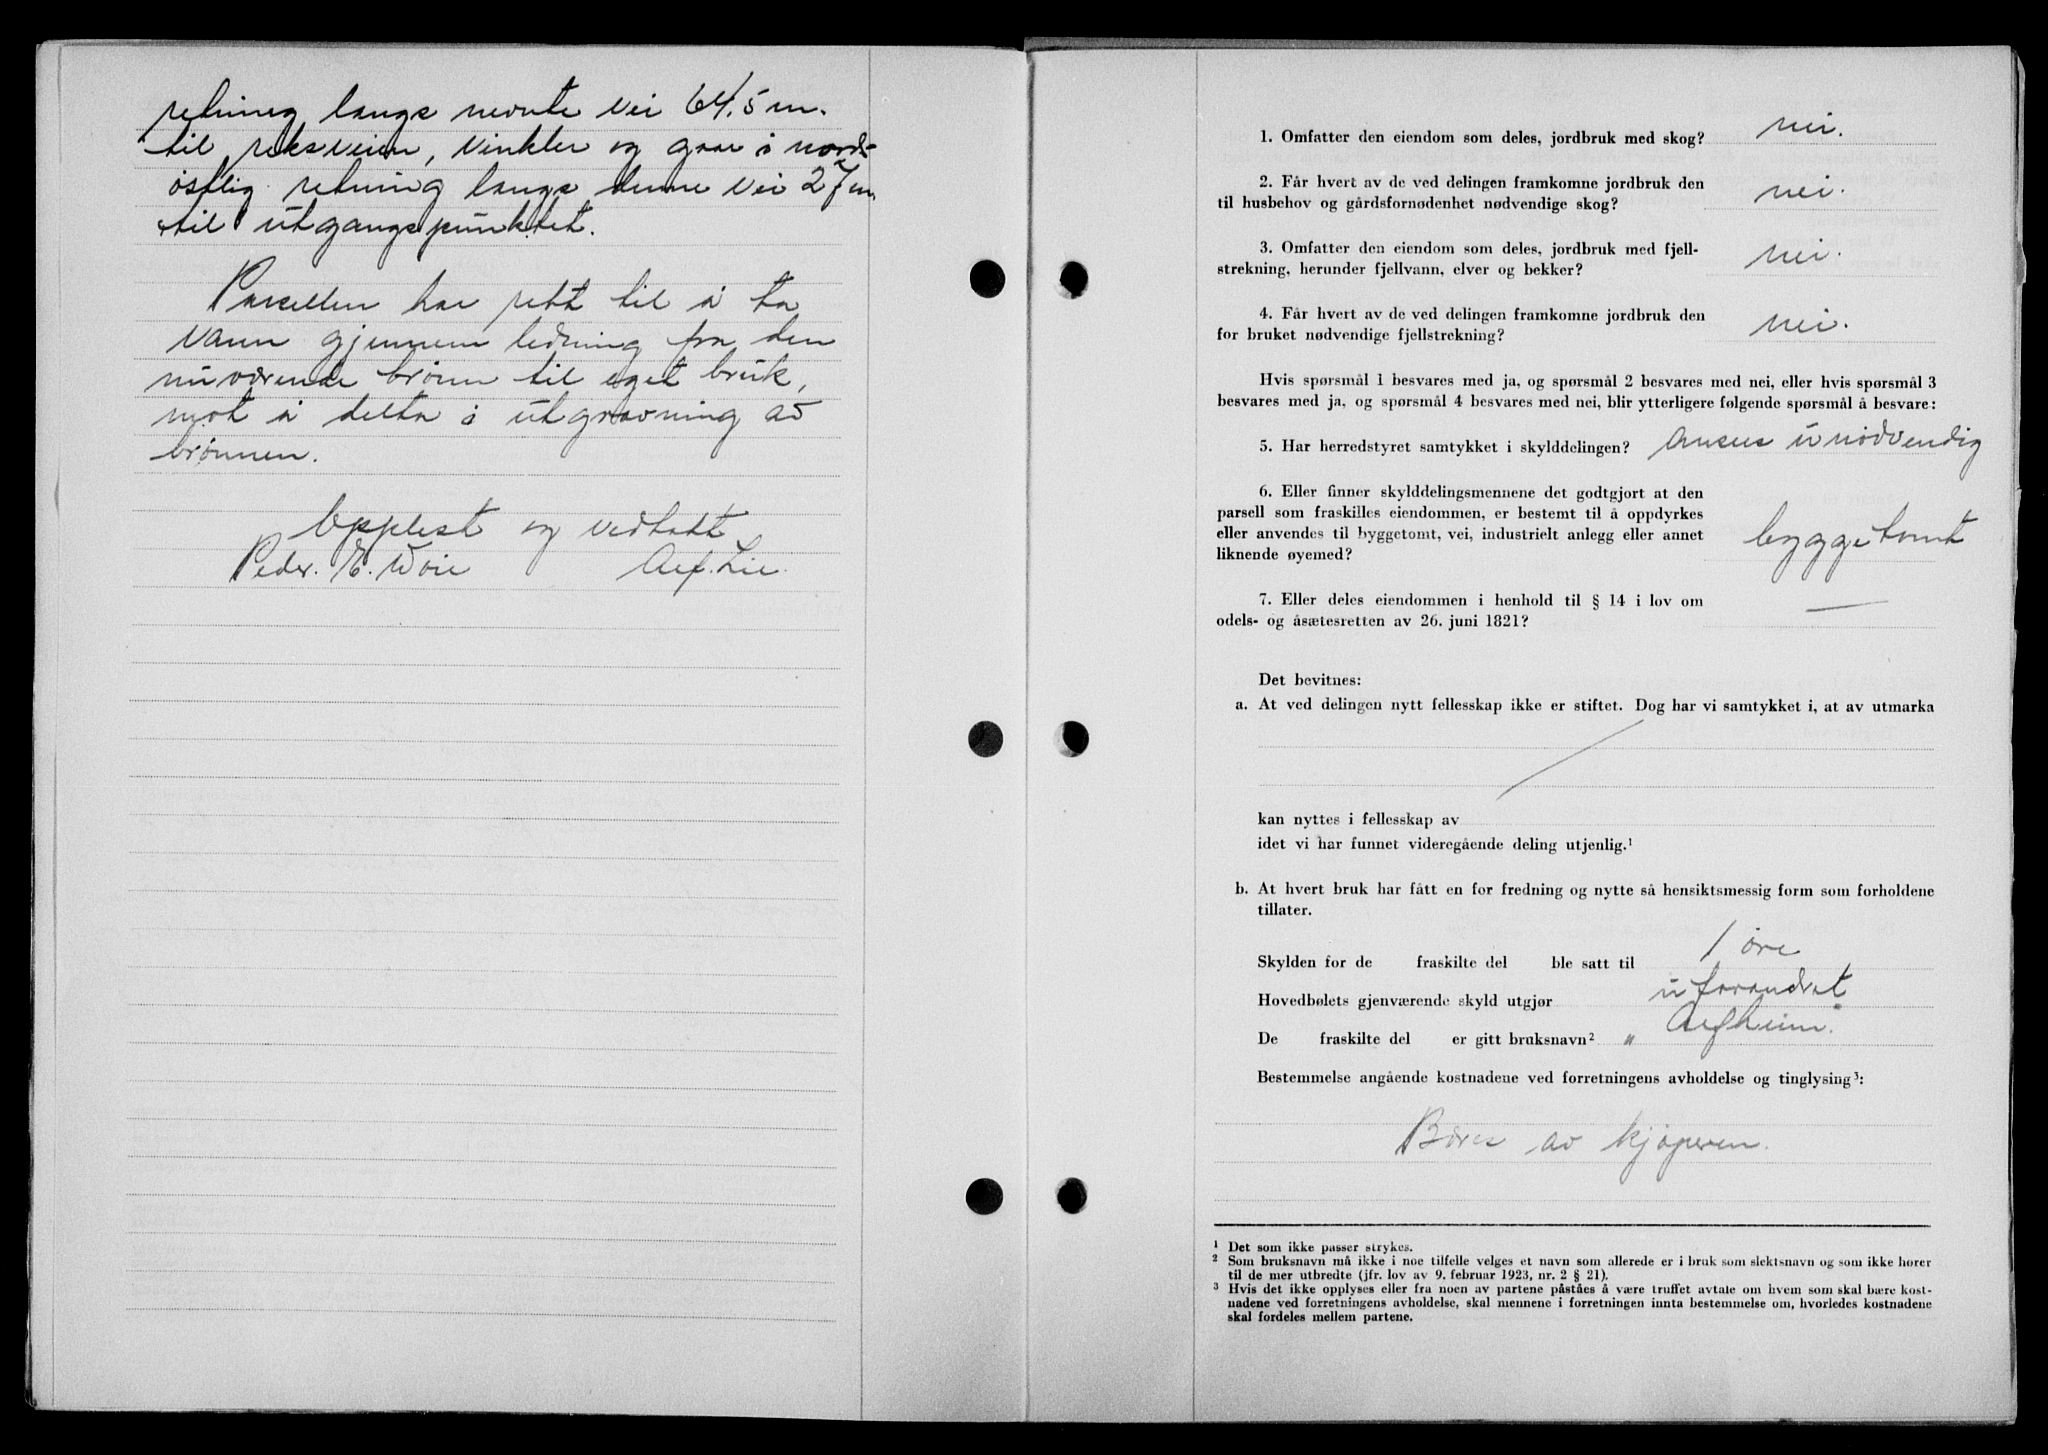 retning langs nevnte vei 64,5 m.
til riksveien, vinkler og gaar i nord-
østlig retning langs denne vei 27 m.
til utgangspunktet.
Parsellen har rett til å ta
vann gjennem ledning fra den
nuværende brønn til eget bruk,
mot å delta i utgravning av
brønnen.
Opplest og vedtatt
Peder. E. Woie Alf. Lie.
1. Omfatter den eiendom som deles, jordbruk med skog? nei.
2. Får hvert av de ved delingen framkomne jordbruk den
til husbehov og gårdsfornødenhet nødvendige skog? nei.
3. Omfatter den eiendom som deles, jordbruk med fjell-
strekning, herunder fjellvann, elver og bekker? nei.
4. Får hvert av de ved delingen framkomne jordbruk den
for bruket nødvendige fjellstrekning? nei.
Hvis spørsmål 1 besvares med ja, og spørsmål 2 besvares med nei, eller hvis spørsmål 3
besvares med ja, og spørsmål 4 besvares med nei, blir ytterligere følgende spørsmål å besvare:
5. Har herredstyret samtykket i skylddelingen? Ansees unødvendig
6. Eller finner skylddelingsmennene det godtgjort at den
parsell som fraskilles eiendommen, er bestemt til å oppdyrkes
eller anvendes til byggetomt, vei, industrielt anlegg eller annet
liknende øyemed? byggetomt
7. Eller deles eiendommen i henhold til § 14 i lov om
odels- og åsætesretten av 26. juni 1821? —
Det bevitnes:
a. At ved delingen nytt fellesskap ikke er stiftet. Dog har vi samtykket i, at av utmarka
kan nyttes i fellesskap av
idet vi har funnet videregående deling utjenlig.¹
b. At hvert bruk har fått en for fredning og nytte så hensiktsmessig form som forholdene
tillater.
Skylden for de fraskilte del ble satt til 1 øre
Hovedbølets gjenværende skyld utgjør uforandret
De fraskilte del er gitt bruksnavn² " Alfheim.
Bestemmelse angående kostnadene ved forretningens avholdelse og tinglysing³:
Bæres av kjøperen.
¹ Det som ikke passer strykes.
² Som bruksnavn må ikke i noe tilfelle velges et navn som allerede er i bruk som slektsnavn og som ikke hører
til de mer utbredte (jfr. lov av 9. februar 1923, nr. 2 § 21).
³ Hvis det ikke opplyses eller fra noen av partene påståes å være truffet avtale om hvem som skal bære kost-
nadene ved forretningens avholdelse, skal mennene i forretningen innta bestemmelse om, hvorledes kostnadene
skal fordeles mellem partene.